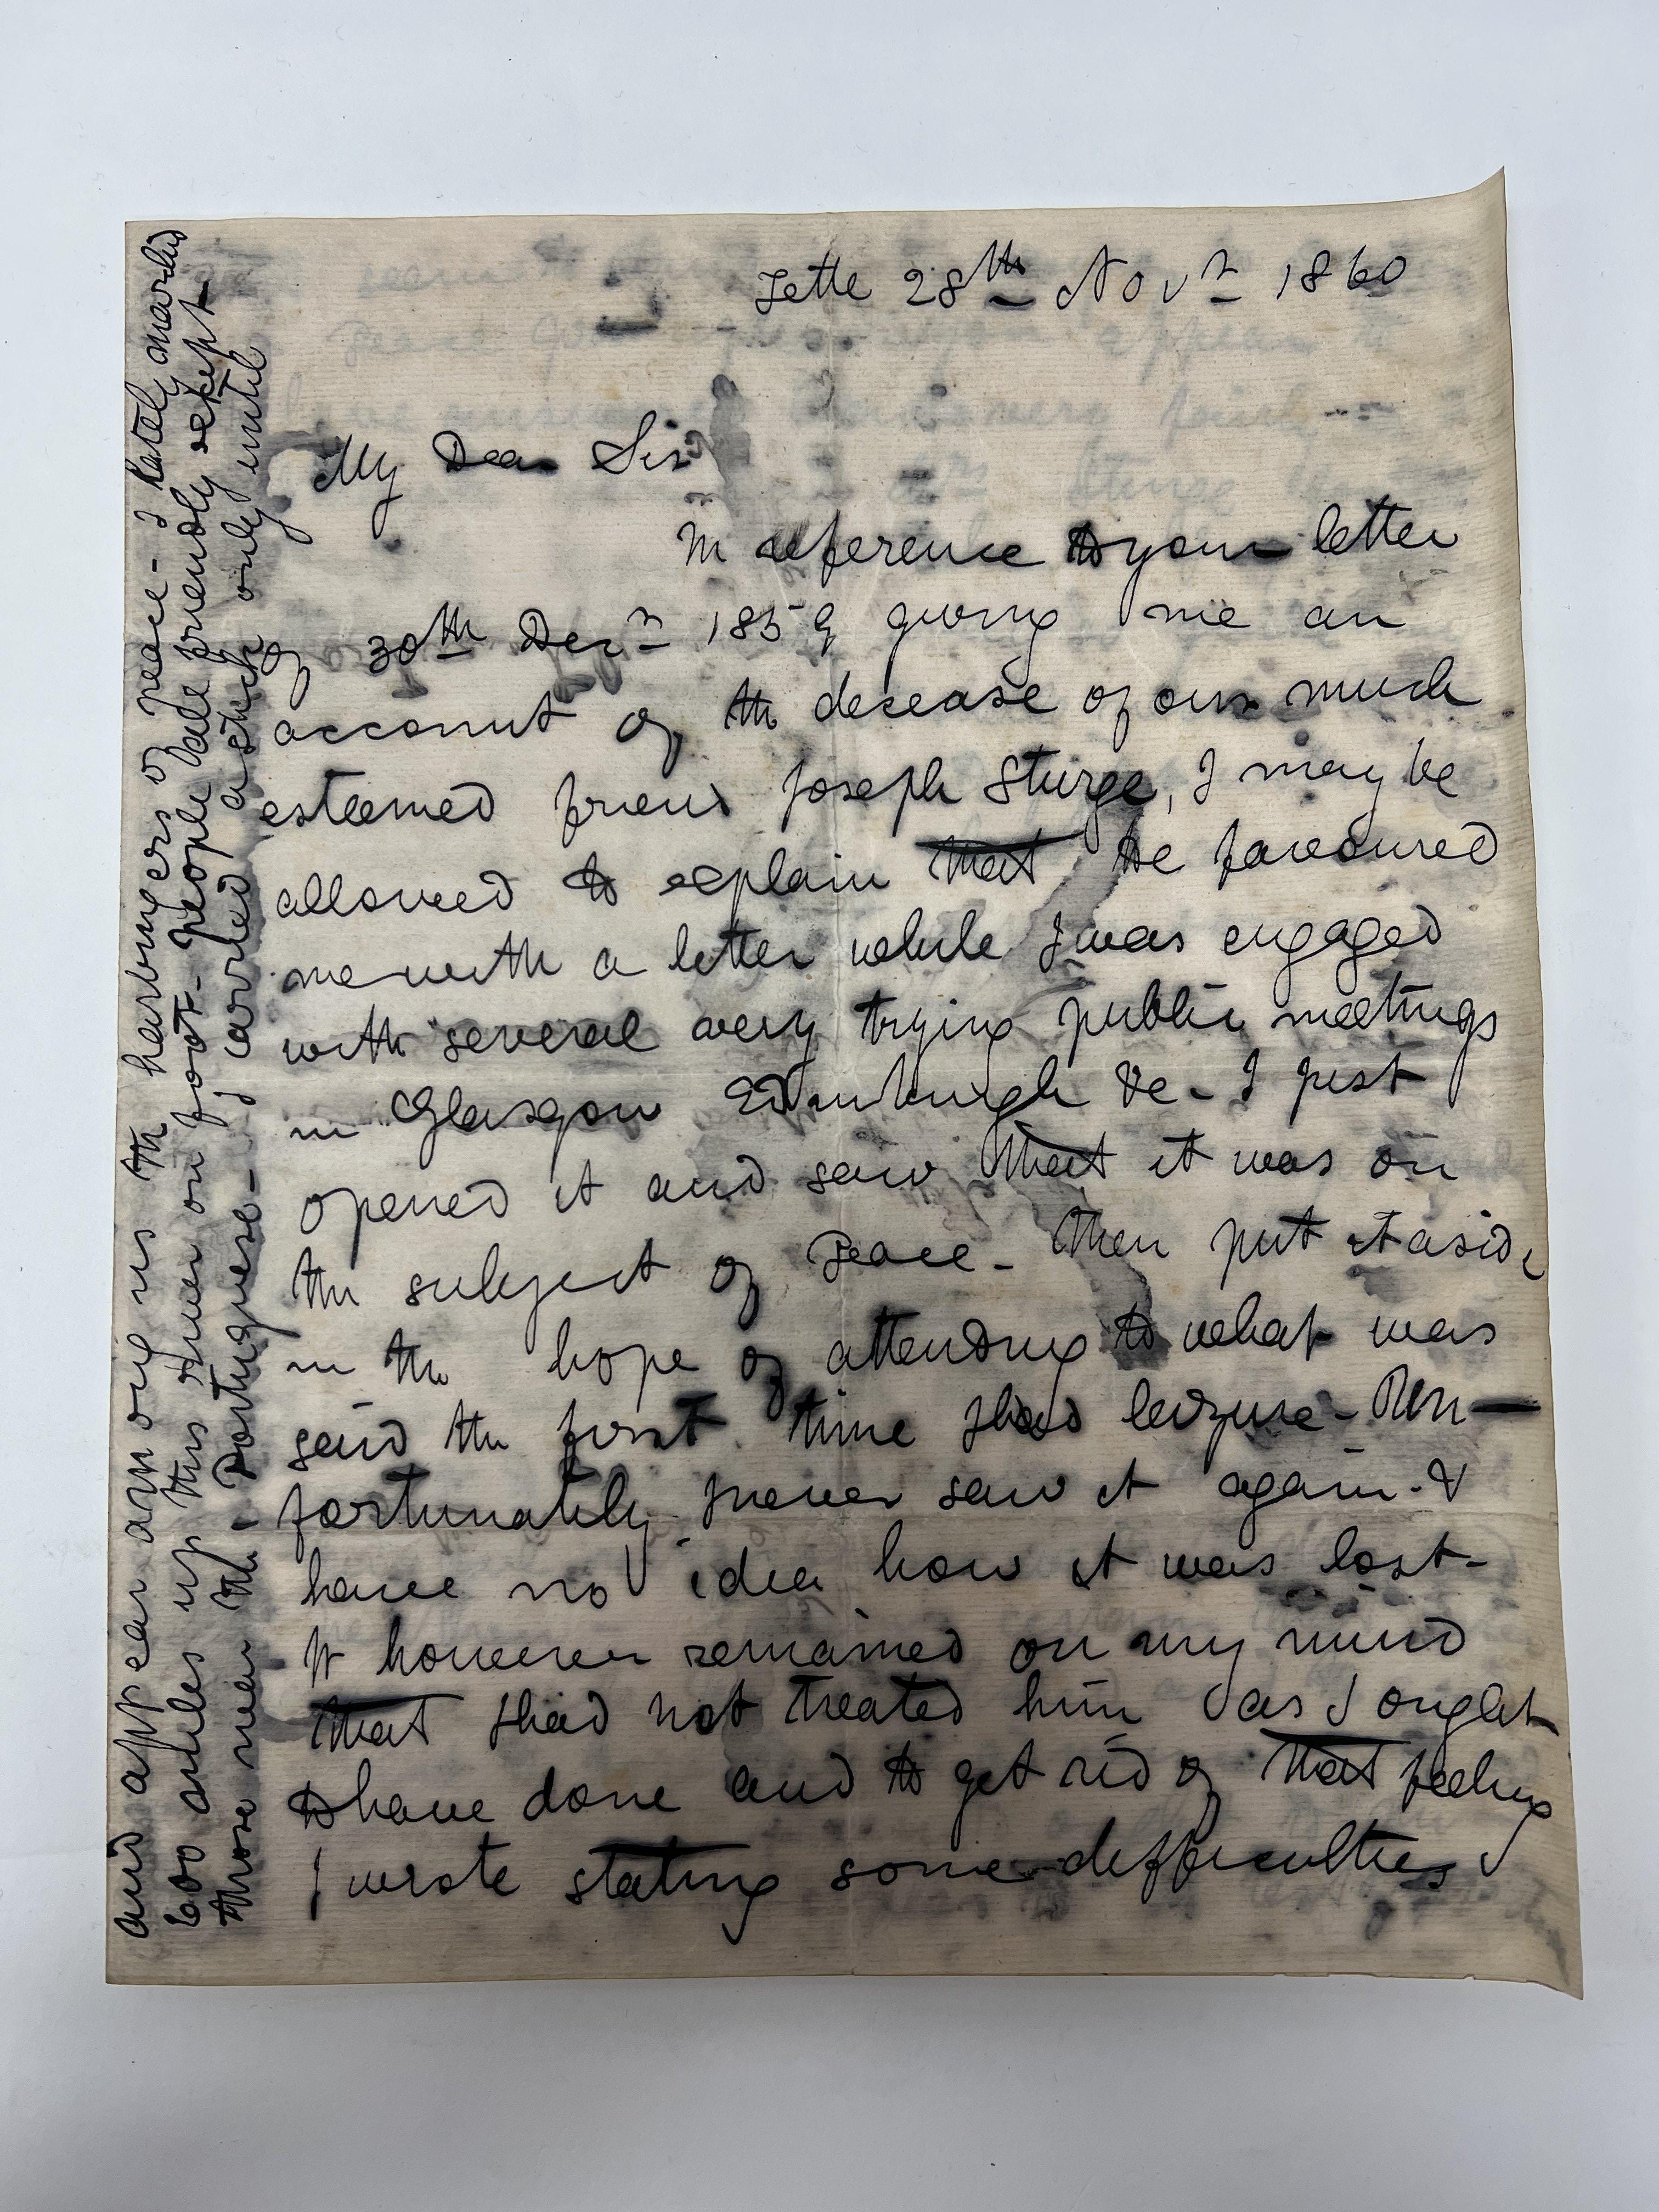 Tette 28th Novr 1860
My Dear Sir
In reference to your letter
of 30th Decr 1859 giving me an
account of the decease of our much
esteemed friend Joseph Sturge, I may be
allowed to explain that he favoured
me with a letter while I was engaged
with several very trying public meetings
in Glasgow Edinburgh &c - I just
opened it and saw that it was on
the subject of Peace - then put it aside
in the hope of attending to what was
said the first time I had leizure - Un-
fortunately I never saw it again - &
have no idea how it was lost -
It however remained on my mind
that I had not treated him as I ought
to have done and to get rid of that feeling
I wrote stating some difficulties I
and appear among us the harbingers of peace - I lately marched
600 miles up this river on foot - People all friendly except
those near the Portuguese - I carried a stick only until